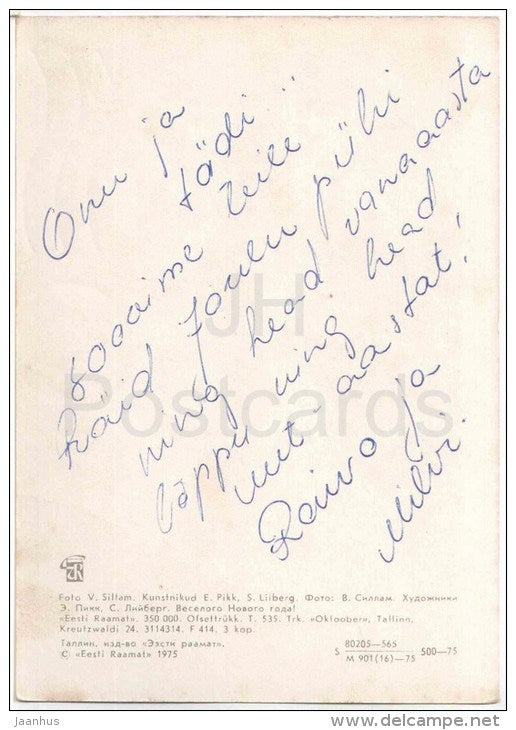 Onu ja
tädi!
Soovime teile
häid jõulu pühi
ning head vanaaasta
lõppu ning head
uut-aastat!
Raivo ja
Milvi.
JH
Postcards
Foto V. Sillam. Kunstnikud E. Pikk, S. Liiberg. Фото: В. Силлам. Художники
Э. Пикк, С. Лийберг. Веселого Нового года!
«Eesti Raamat». 350 000. Ofsettrükk. T. 535. Trk. «Oktoober», Tallinn,
Kreutzwaldi 24. 3114314. F 414. 3 kop.
Таллин, изд-во «Ээсти раамат».
© «Eesti Raamat» 1975
S 80205—565
M 901(16)—75 500—75
jauhus
http://www.delcampe.net